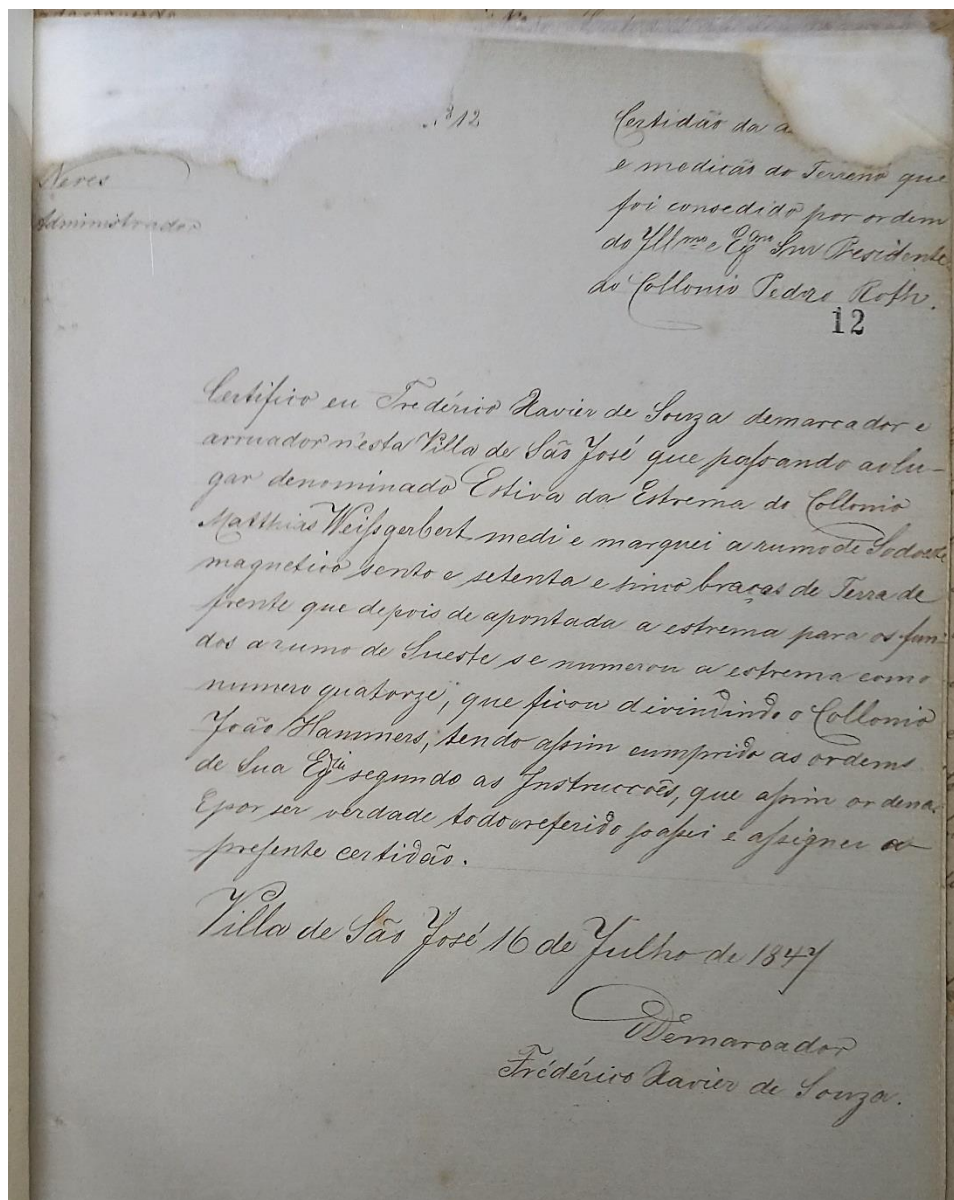 Neves
Administrador
Nº 12
Certidão da
e medicãs do Terreno que
foi consedido por ordem
do Illmo e Exmo Snr Presidente
ao Collonio Pedro Roth.
12
Certifico eu Frédérico Xavier de Souza demarcador e
arruador n'esta Villa de São José que passando aolu-
gar denominado Estiva da Estrema do Collonio
Matthias Weissgerbert medi e marquei a rumo de Sodoeste
magnetico sento e setenta e sinco braças de Terra de
frente que depois de apontada a estrema para os fun-
dos a rumo de Sueste se numerou a estrema como
numero quatorze, que ficou divindindo o Collonio
João Hammers, tendo assim cumprido as ordems
de Sua Exia segundo as Instruccoẽs, que assim ordena.
Epor ser verdade todo oreferido passei e assignei a
presente certidão.
Villa de São José 16 de Julho de 1847
Demarcador
Frédérico Xavier de Souza.